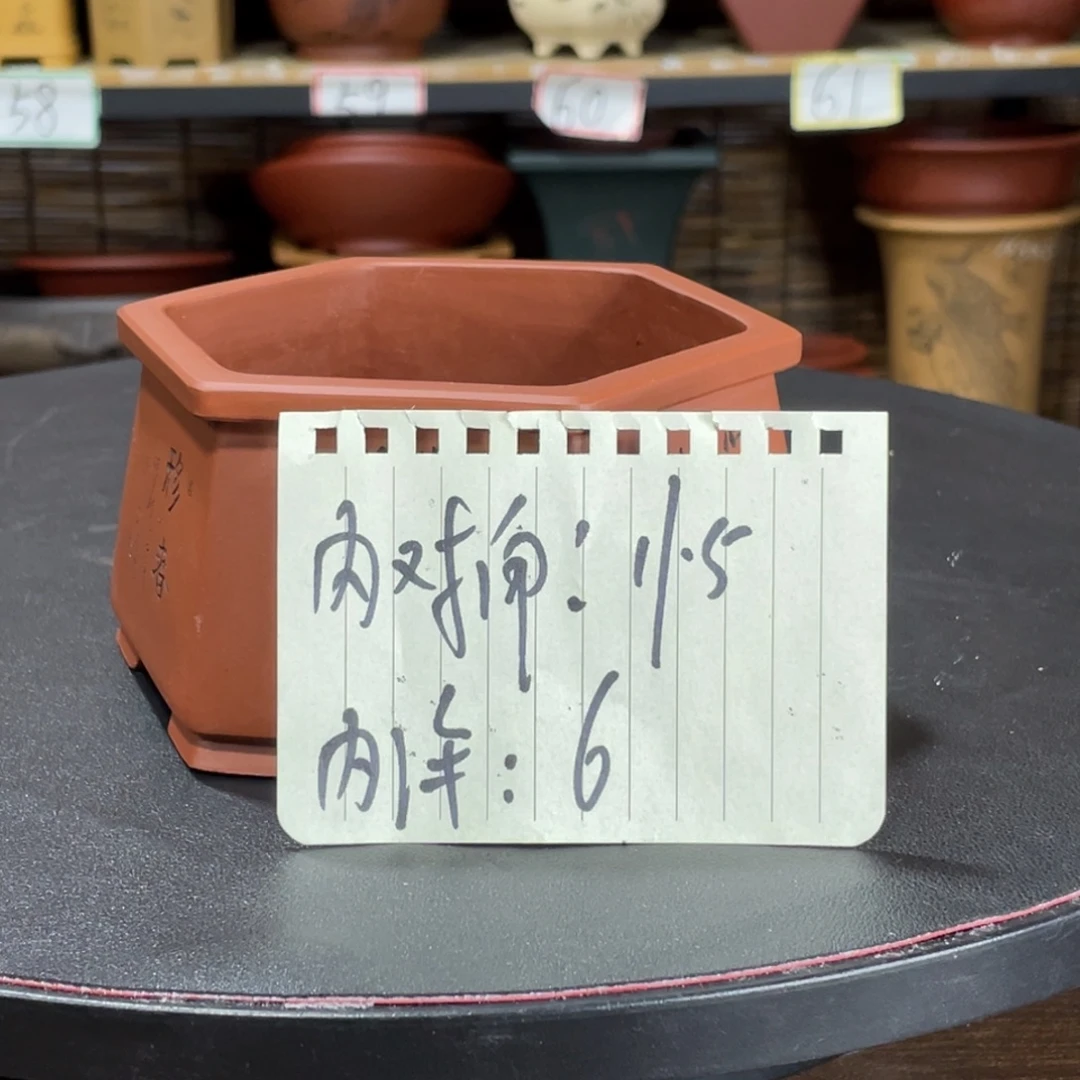 58
59
60
61
内对角:11.5
内深:6